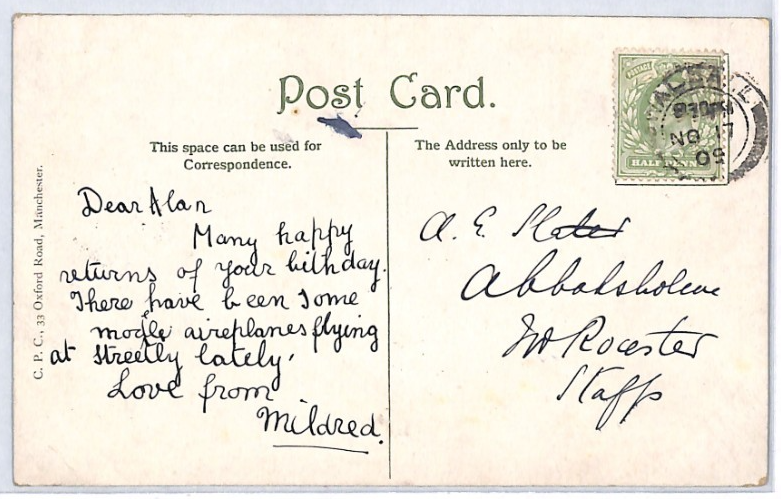 Post Card.
This space can be used for
Correspondence.
The Address only to be
written here.
C. P. C., 33 Oxford Road, Manchester.
HALF PENNY
NO 17
09
Dear Alan
Many happy
returns of your bithday.
There have been some
modle aireplanes flying
at Streetly lately.
Love from
Mildred.
A. E. Slater
Abbotsholme
Nr Rocester
Staffs